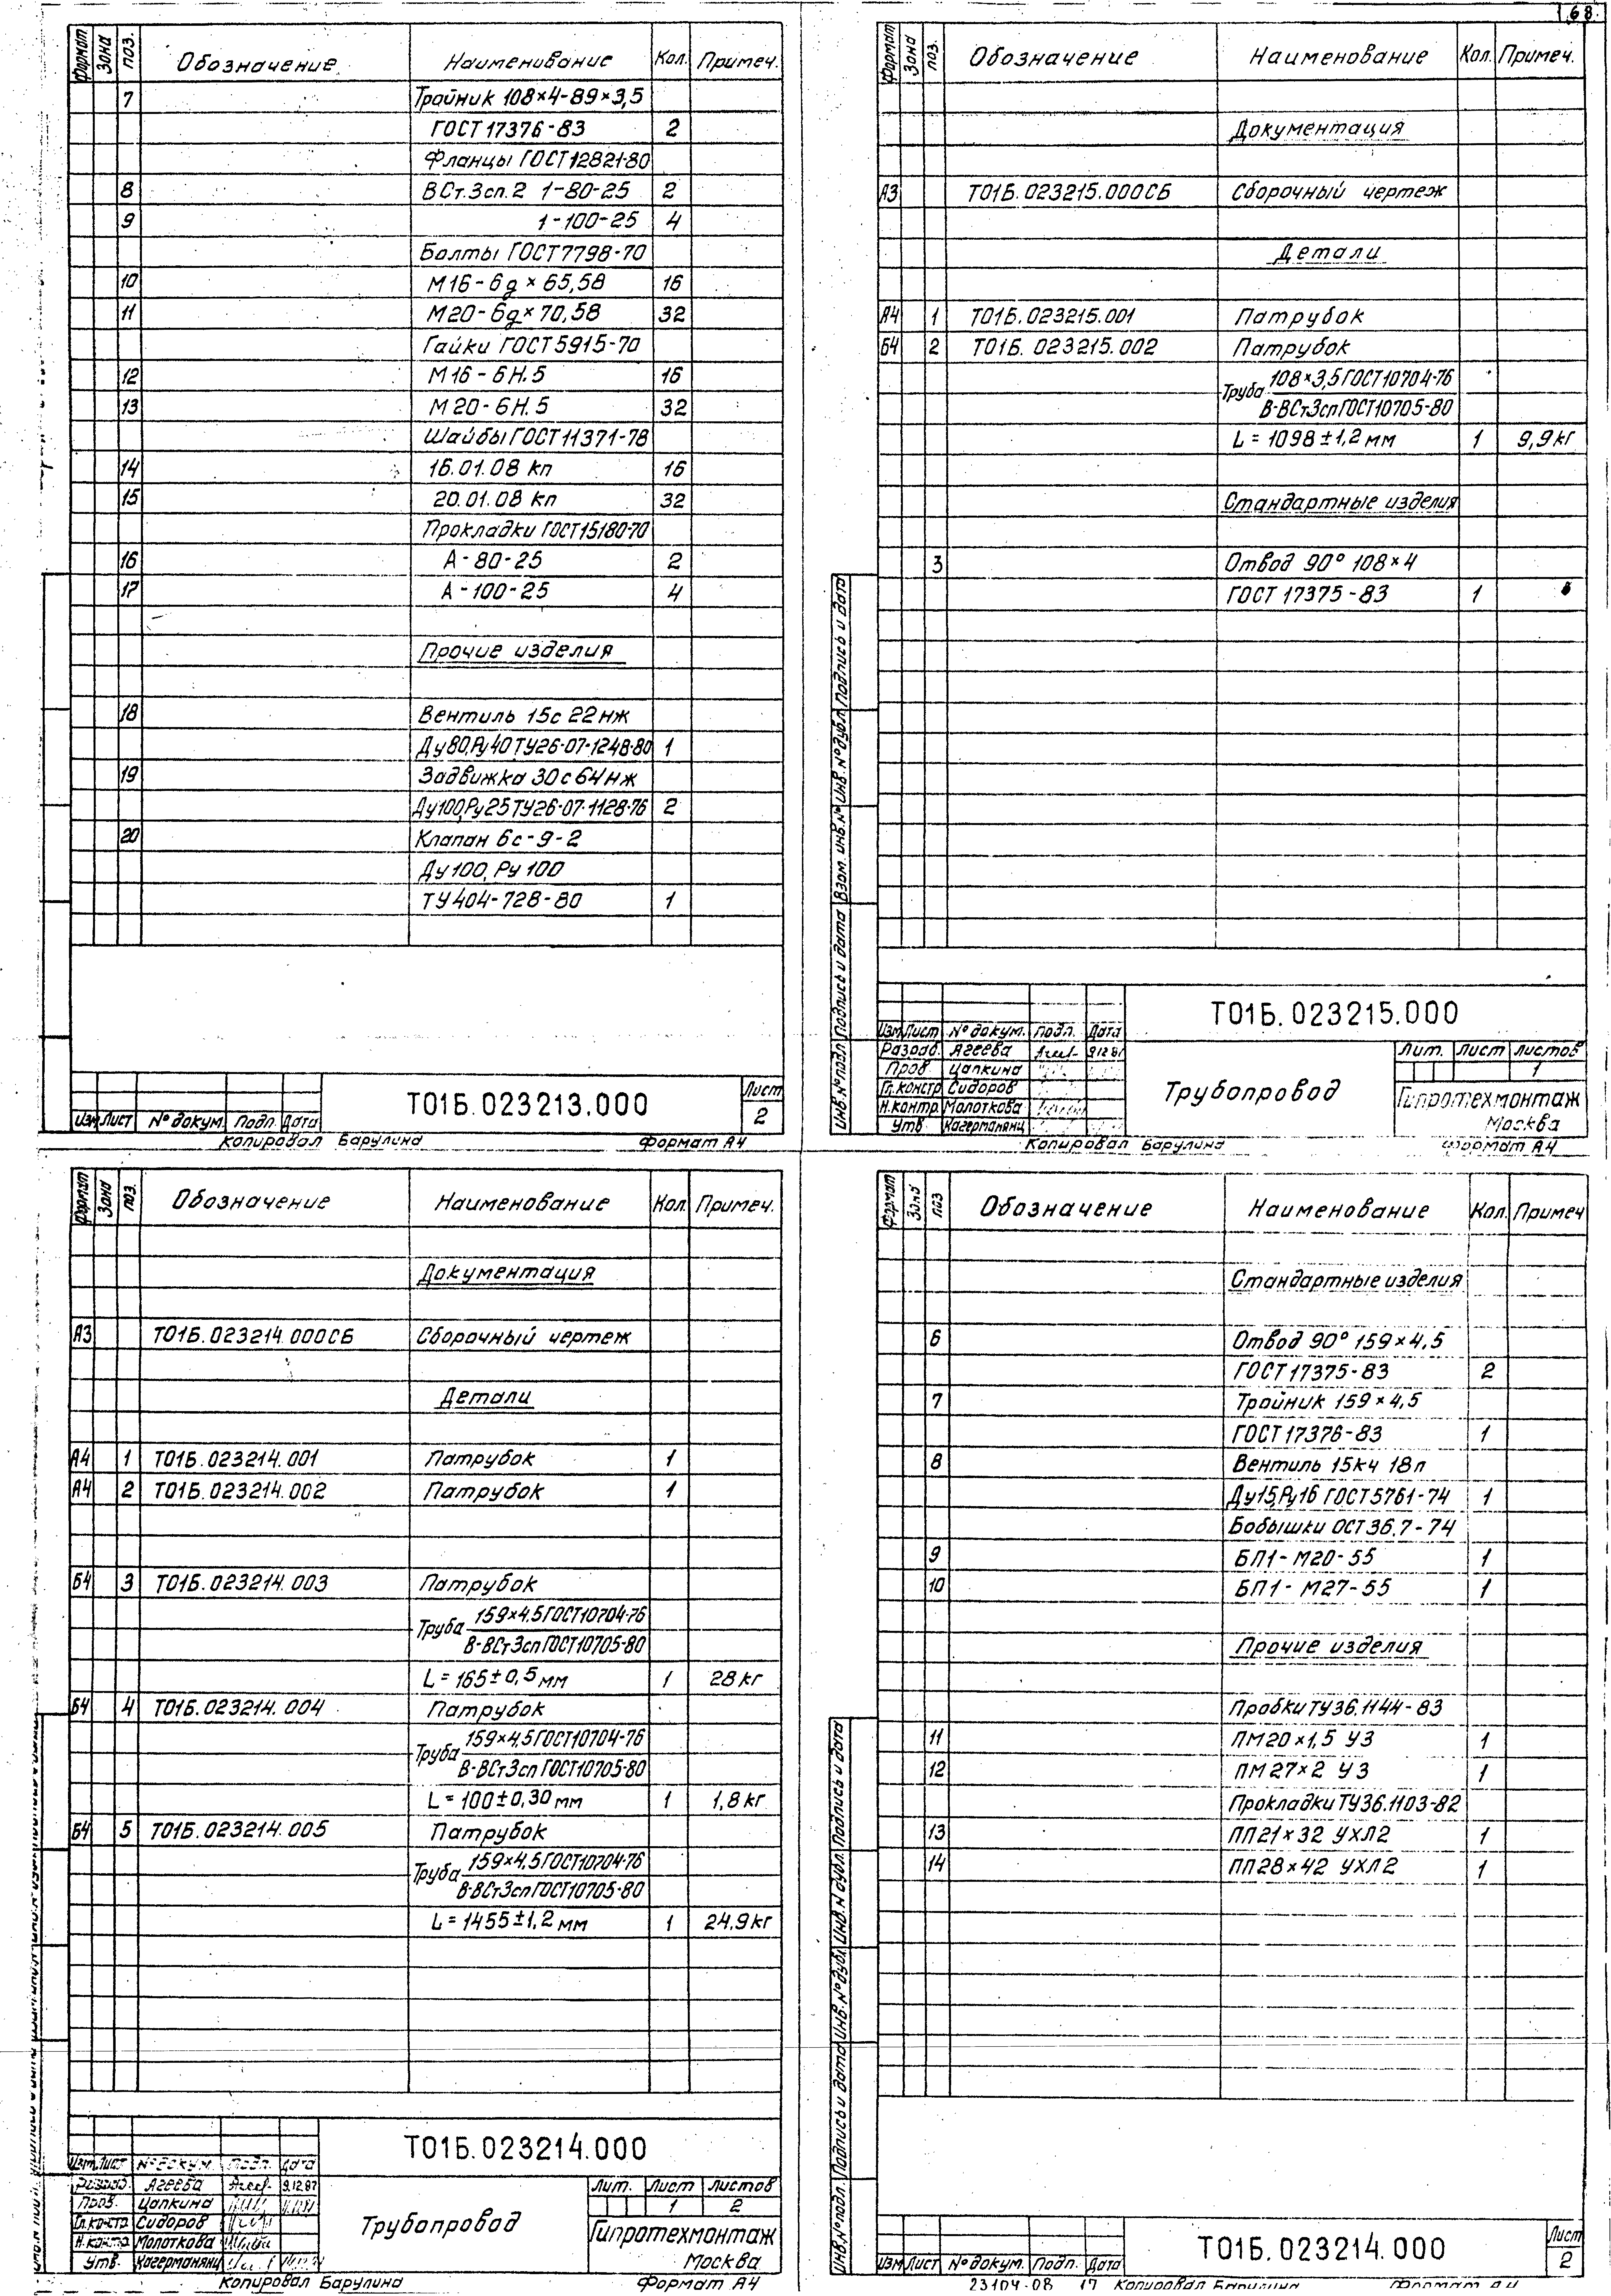 168.
Формат Зона поз. Обозначение Наименование Кол. Примеч.
7 Тройник 108×4-89×3,5
ГОСТ 17376-83 2
Фланцы ГОСТ12821-80
8 ВСт.3сп.2 1-80-25 2
9 1-100-25 4
Болты ГОСТ7798-70
10 М16-6g×65,58 16
11 М20-6g×70,58 32
Гайки ГОСТ5915-70
12 М16-6Н.5 16
13 М20-6Н.5 32
Шайбы ГОСТ11371-78
14 16.01.08 кп 16
15 20.01.08 кп 32
Прокладки ГОСТ15180-70
16 А-80-25 2
17 А-100-25 4
Прочие изделия
18 Вентиль 15с 22нж
Ду80,Ру40,ТУ26-07-1248-80 1
19 Задвижка 30с64нж
Ду100,Ру25 ТУ26-07-1128-76 2
20 Клапан 6с-9-2
Ду100, Ру100
ТУ404-728-80 1
Изм Лист № докум. Подп. Дата
Т01Б.023213.000
Лист
2
Копировал Барулина Формат А4
Формат Зона поз. Обозначение Наименование Кол. Примеч.
Документация
А3 Т01Б.023215.000СБ Сборочный чертеж
Детали
А4 1 Т01Б.023215.001 Патрубок
Б4 2 Т01Б.023215.002 Патрубок
Труба 108×3,5 ГОСТ10704-76
В-ВСт3сп ГОСТ10705-80
L=1098±1,2 мм 1 9,9кг
Стандартные изделия
3 Отвод 90° 108×4
ГОСТ 17375-83 1
Инв.№подл Подпись и дата Взам. инв.№ Инв.№дубл. Подпись и дата
Т01Б.023215.000
Изм Лист № докум. Подп. Дата
Разраб. Агеева
Пров. Цапкина
Гл.констр Сидоров
Н.контр. Молоткова
Утв. Кагерманянц
Трубопровод
Лит. Лист Листов
1
Гипротехмонтаж
Москва
Копировал Барулина Формат А4
Формат Зона поз. Обозначение Наименование Кол. Примеч.
Документация
А3 Т01Б.023214.000СБ Сборочный чертеж
Детали
А4 1 Т01Б.023214.001 Патрубок 1
А4 2 Т01Б.023214.002 Патрубок 1
Б4 3 Т01Б.023214.003 Патрубок
Труба 159×4,5 ГОСТ10704-76
В-ВСт3сп ГОСТ10705-80
L=165±0,5 мм 1 28кг
Б4 4 Т01Б.023214.004 Патрубок
Труба 159×4,5 ГОСТ10704-76
В-ВСт3сп ГОСТ10705-80
L=100±0,30 мм 1 1,8кг
Б4 5 Т01Б.023214.005 Патрубок
Труба 159×4,5 ГОСТ10704-76
В-ВСт3сп ГОСТ10705-80
L=1455±1,2 мм 1 24,9кг
Т01Б.023214.000
Изм Лист № докум. Подп. Дата
Разраб. Агеева 9.12.87
Пров. Цапкина
Гл.констр Сидоров
Н.контр Молоткова
Утв. Кагерманянц
Трубопровод
Лит. Лист Листов
1 2
Гипротехмонтаж
Москва
Копировал Барулина Формат А4
Формат Зона поз Обозначение Наименование Кол. Примеч
Стандартные изделия
6 Отвод 90° 159×4,5
ГОСТ17375-83 2
7 Тройник 159×4,5
ГОСТ17376-83 1
8 Вентиль 15кч 18п
Ду15,Ру16 ГОСТ5761-74 1
Бобышки ОСТ36.7-74
9 БП1-М20-55 1
10 БП1-М27-55 1
Прочие изделия
Пробки ТУ36.1144-83
11 ПМ20×1,5 У3 1
12 ПМ27×2 У3 1
Прокладки ТУ36.1103-82
13 ПП21×32 УХЛ2 1
14 ПП28×42 УХЛ2 1
Инв.№подл. Подпись и дата Инв.№дубл Инв.№дубл. Подпись и дата
Изм Лист № докум. Подп. Дата
Т01Б.023214.000
Лист
2
23104-08 17 Копировал Барулина Формат А4